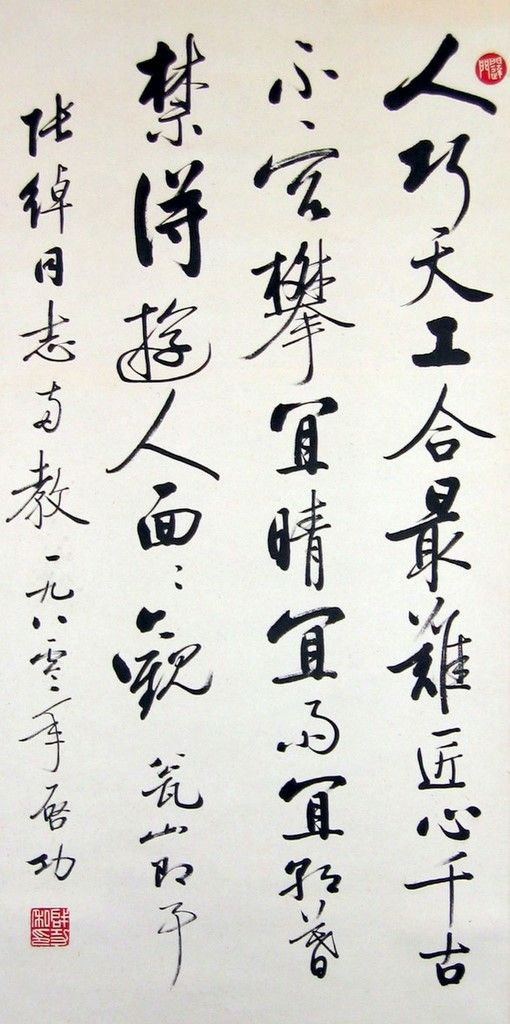 人巧天工合最難匠心千古
不容攀宜晴宜雨宜朝暮
禁得遊人面〻觀 甕山即事
張綽同志教 一九八零年 啓功